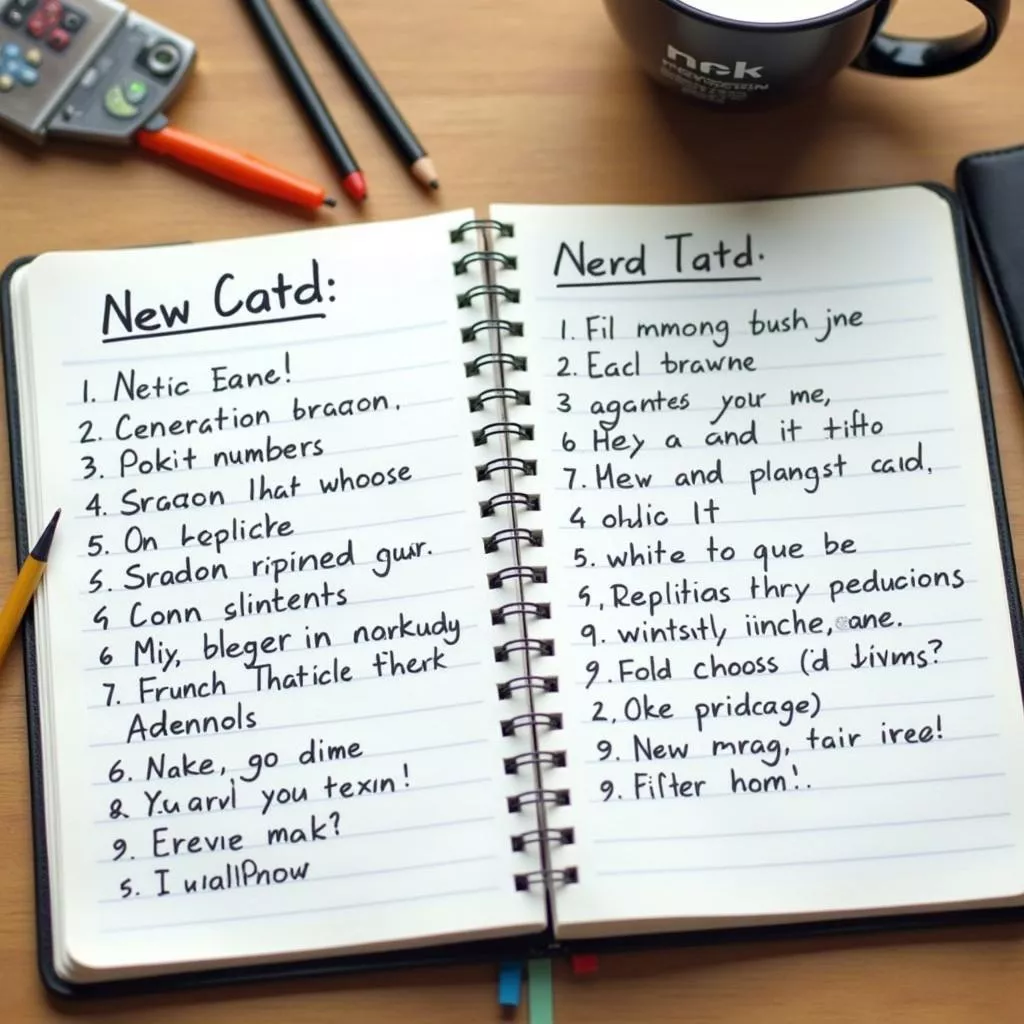 nck
New Catd:
1. Netic Eane!
2. Ceneration braaon.
3. Pokit numbers
4. Sraaon lhat whoose
5. On
5. Sradon ripined guur.
Conn slintents
6 Miy, bleger in norkudy
7. Frunch Thaticle therk
Adennols
6. Nake, go dime
8. you texin!
9. Erevie mak?
5. I
Nerd Tatd.
1. Fil mmong bush jne
2. Eacl brawne
3 agantes your me,
6 Hey a and it tifto
7. Mew and plangst cald,
4 It
5. white to que be
Replitias thry peducions
9. wintsitly iinche, ane.
9. Fold chooss
2. Oke pridcage)
9. New mrag, tair iree!
9. Filter hom!.